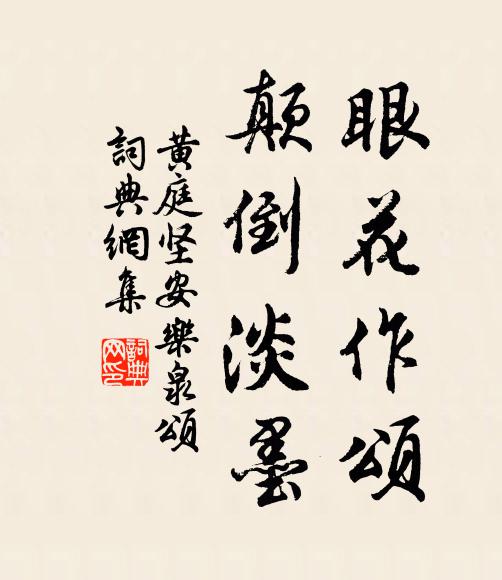 眼花作頌
顛倒淡墨
黃庭坚安樂泉頌
詞典網集
詞典网印